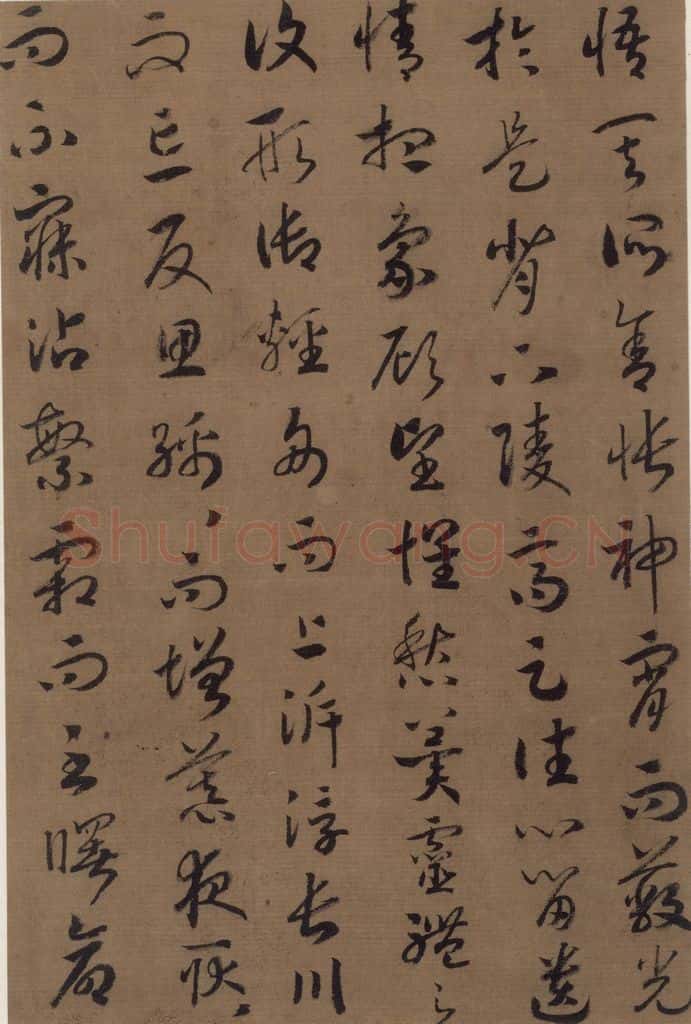 悟其所舍悵神宵而蔽光
於是背下陵高足往心留遺
情想象顧望懷愁冀靈體之
復形御輕舟而上泝浮長川
而忘反思綿〻而增慕夜耿〻
而不寐沾繁霜而至曙命
Shufawang.CN